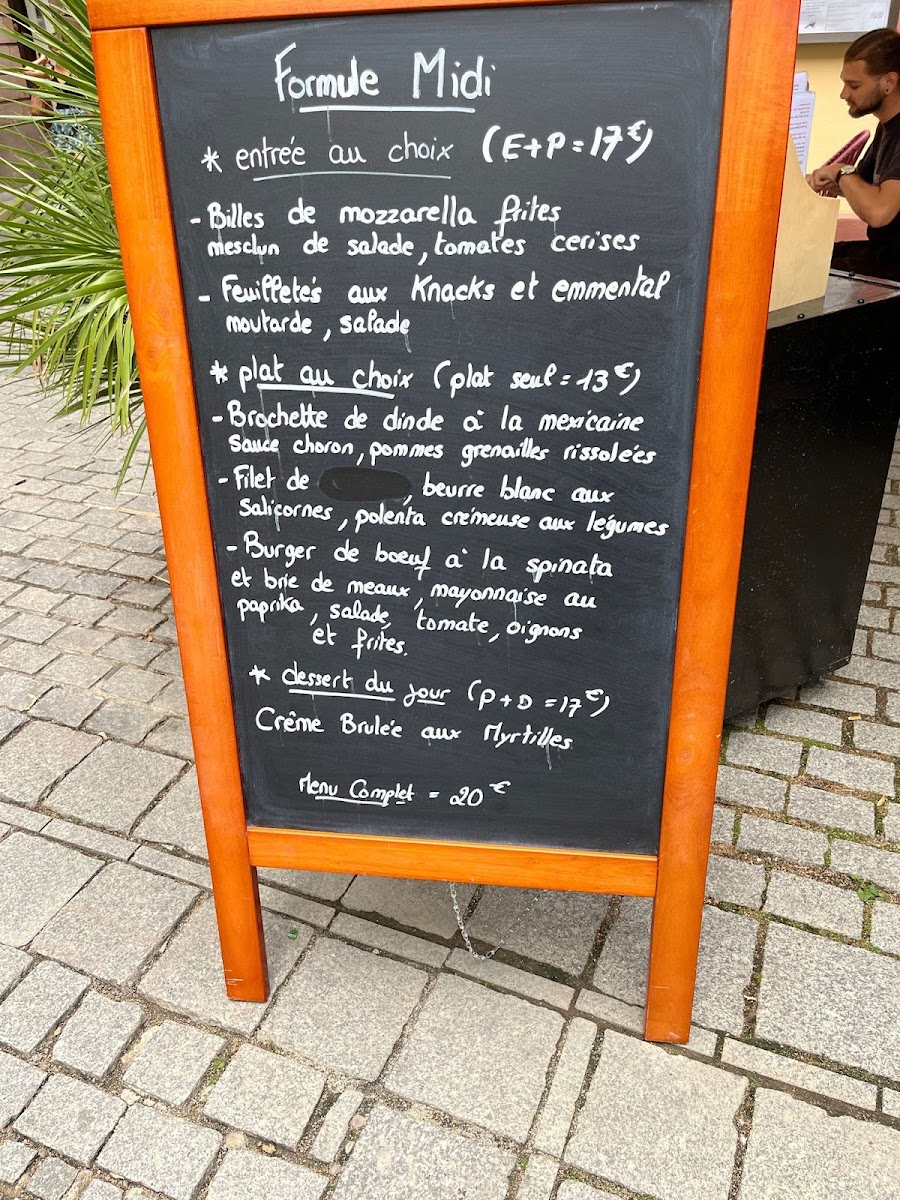 Formule Midi
* entrée au choix (E+P=17€)
- Billes de mozzarella frites
mesclun de salade, tomates cerises
- Feuilletés aux Knacks et emmental
moutarde, salade
* plat au choix (plat seul = 13€)
- Brochette de dinde à la mexicaine
Sauce choron, pommes grenailles rissolées
- Filet de , beurre blanc aux
Salicornes, polenta crémeuse aux légumes
- Burger de boeuf à la spinata
et brie de meaux, mayonnaise au
paprika, salade, tomate, oignons
et frites.
* dessert du jour (P+D=17€)
Crême Brulée aux Myrtilles
Menu Complet = 20€